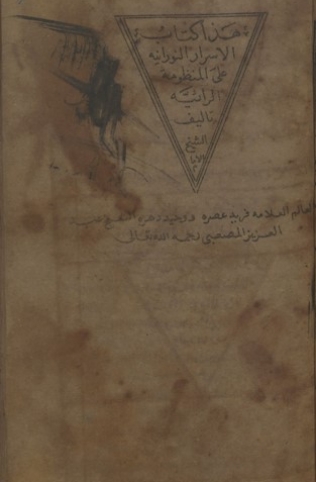 هذا كتاب
الاسرار النورانيه
على المنظومة
الرائيّة
تاليف
الشيخ
الامام
العالم العلامه فريد عصره ووحيد دهره الشيخ عبد
العزيز المصعبي رحمه الله تعالى